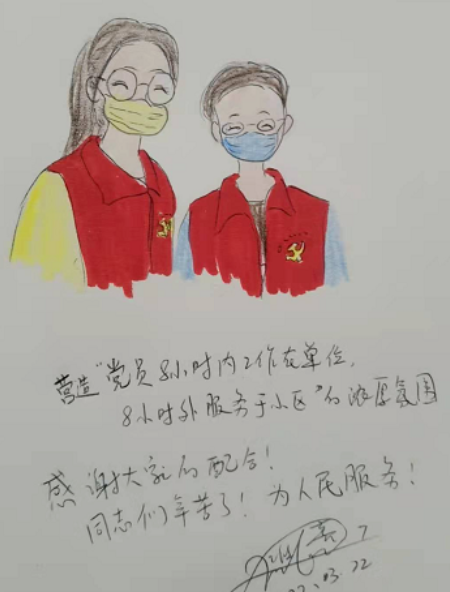 营造“党员8小时内工作在单位,
8小时外服务于小区”的浓厚氛围
感谢大家的配合!
同志们辛苦了!为人民服务!
22.03.22